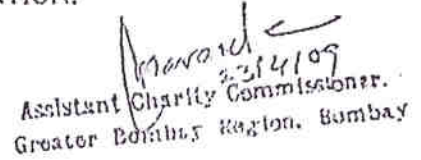 TION.
23/4/09
Assistant Charity Commissioner.
Greater Bombay Region, Bombay